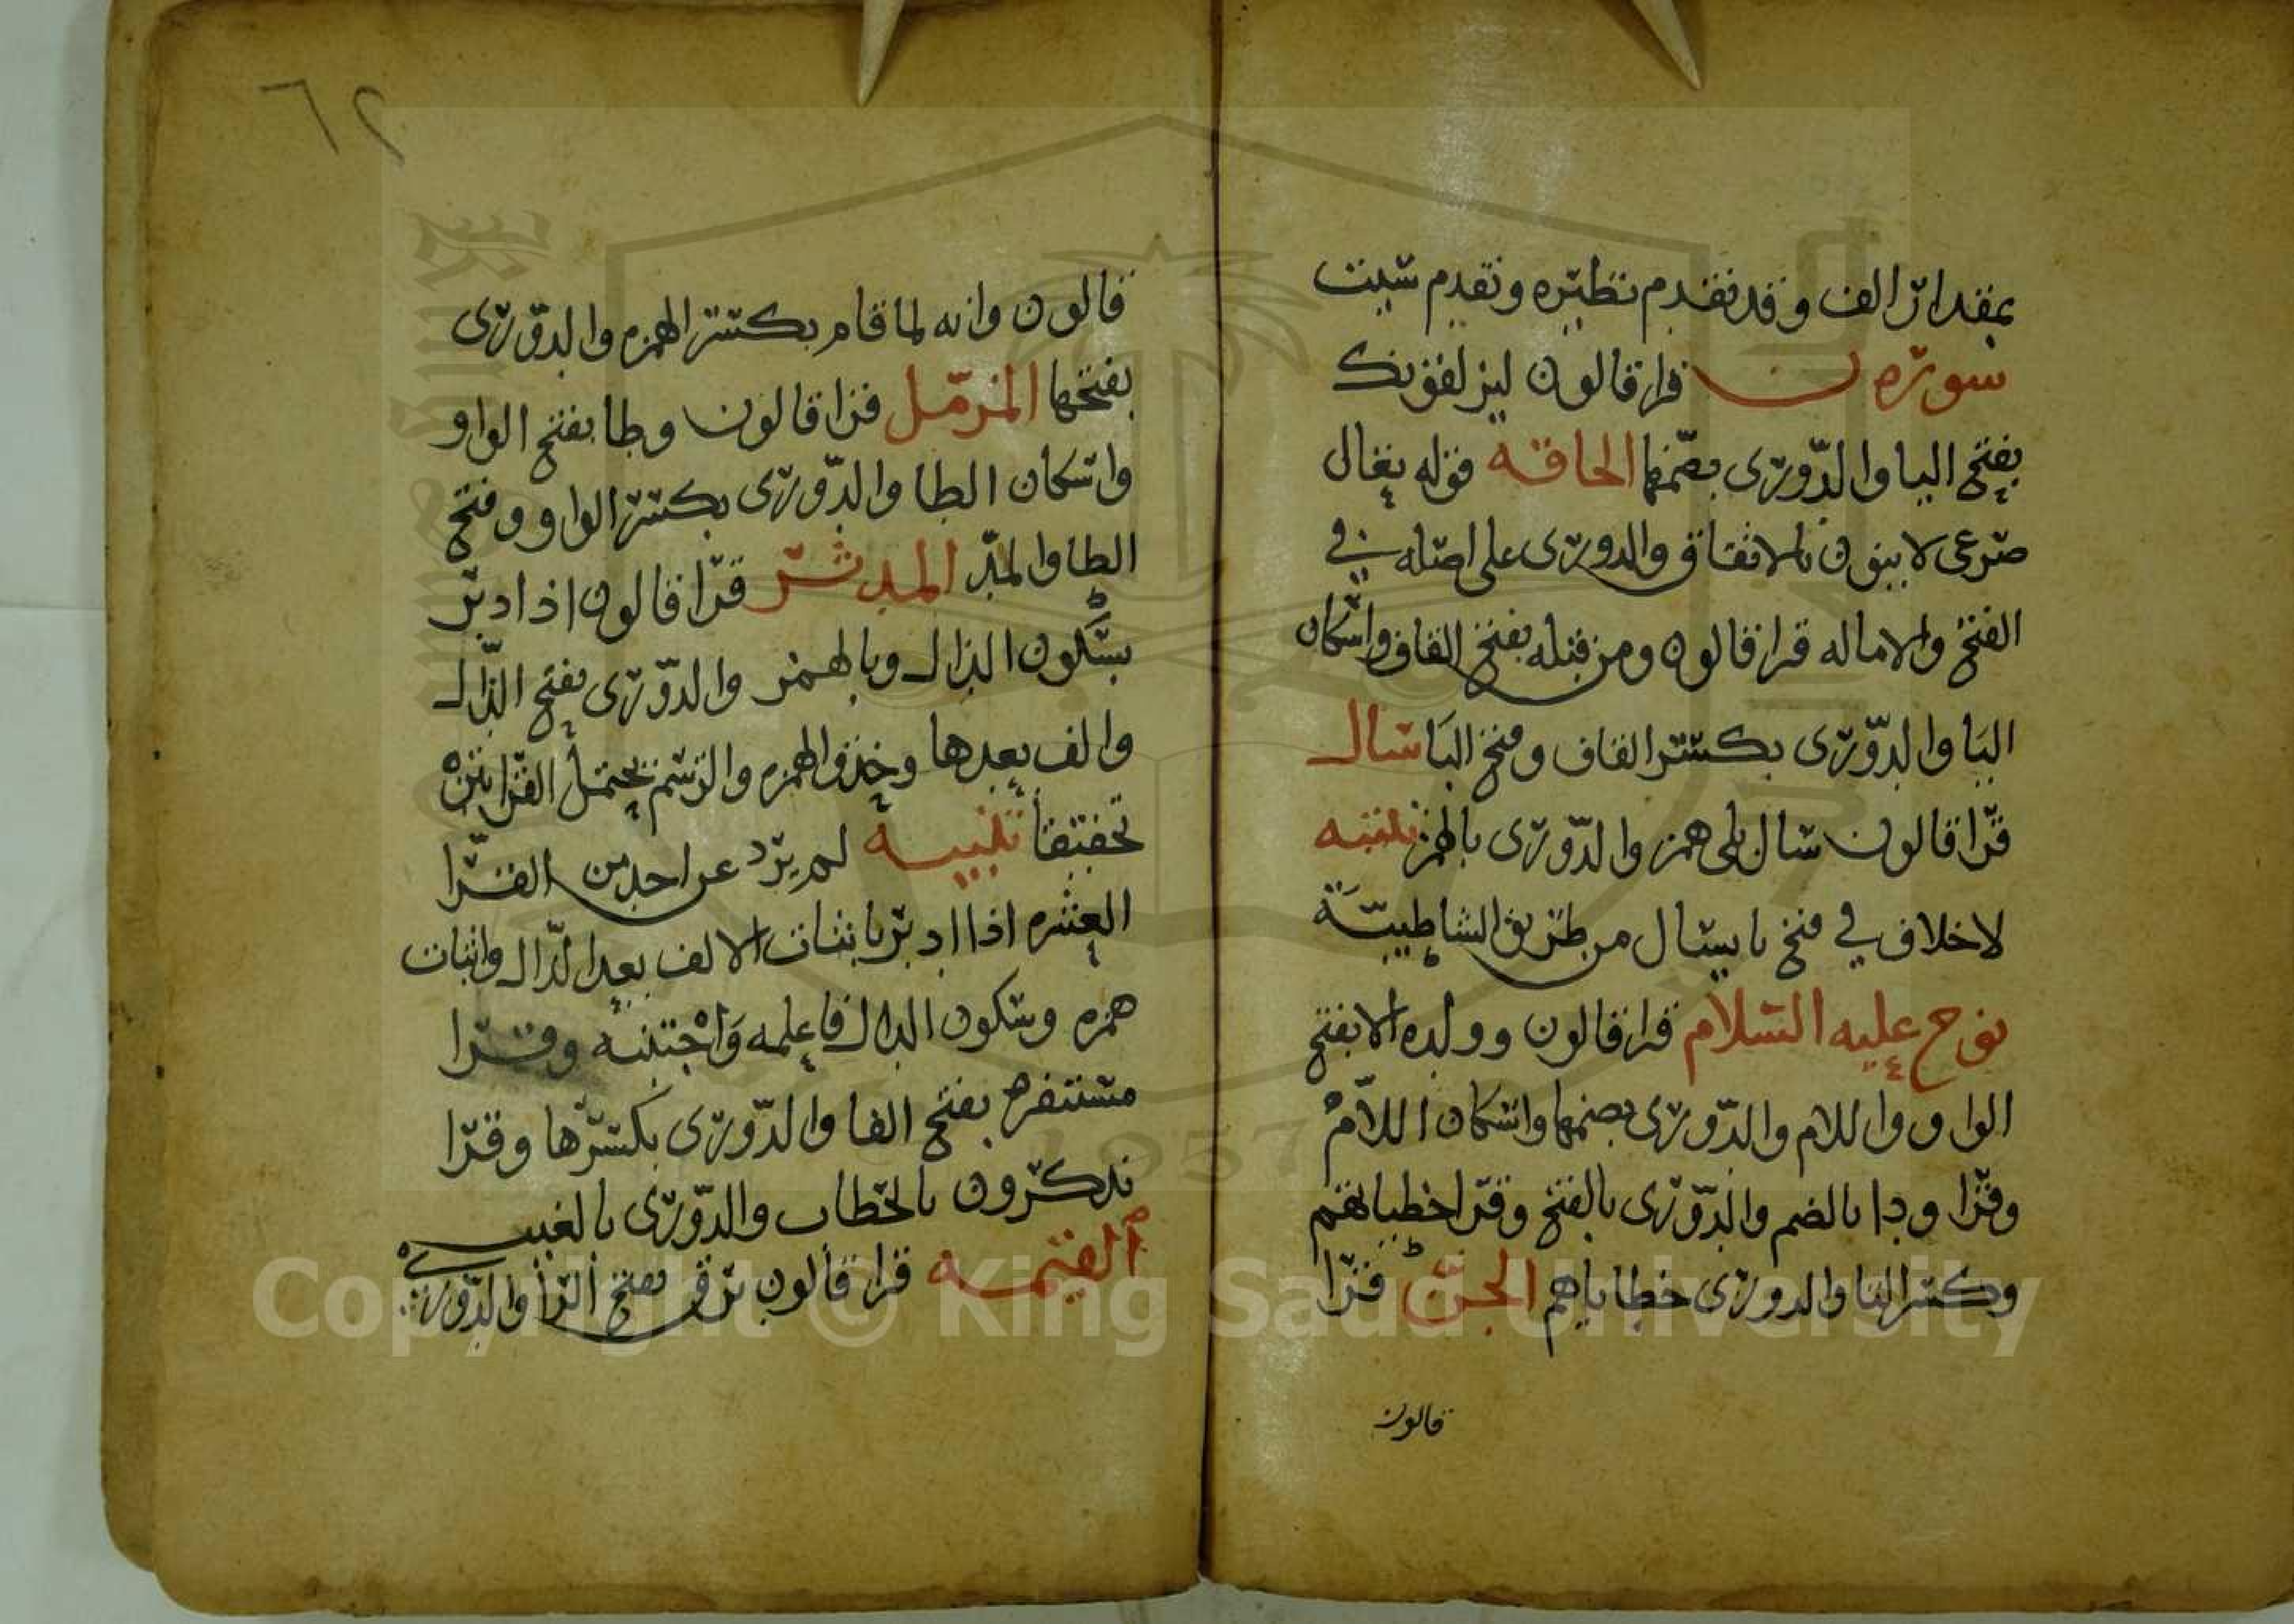 بمقدار الف وقد تقدم نظيره وتقدم سيت
سورة ن قرا قالون ليزلقونك
بفتح اليا والدوري بضمها الحاقه قوله تعال
صرعى لا ينون بالاتفاق والدوري على اصله في
الفتح والاماله قرا قالون ومن قبله بفتح القاف واسكان
البا والدوري بكسر القاف وفتح البا سال
قرا قالون سال بلى همز والدوري بالهمز تنبيه
لا خلاف في فتح يا يسال من طريق الشاطبية
نوح عليه السلام قرا قالون وولده الا بفتح
الواو واللام والدوري بضمها واسكان اللام
وقرا ودا بالضم والدوري بالفتح وقرا خطياتهم
وكسر التا والدوري خطاياهم الجن قرا
قالون
٦٢
قالون وانه لما قام بكسر الهمزه والدوري
بفتحها المزمل قرا قالون وطا بفتح الواو
واسكان الطا والدوري بكسر الواو وفتح
الطا والمد المدثر قرا قالون اذ ادبر
بسكون الذال وبالهمز والدوري بفتح الذال
والف بعدها وحذف الهمزه والرسم يحتمل القراتين
تحقيقا تنبيه لم يرد عن احد من القرا
العشره اذا ادبر باثبات الالف بعد الذال واثبات
همزه وسكون الدال فاعلمه واجتنبه وقرا
مستنفره بفتح الفا والدوري بكسرها وقرا
تذكرون بالخطاب والدوري بالغيب
القيمه قرا قالون برق بفتح الرا والدوري
Copyright © King Saud University
1957